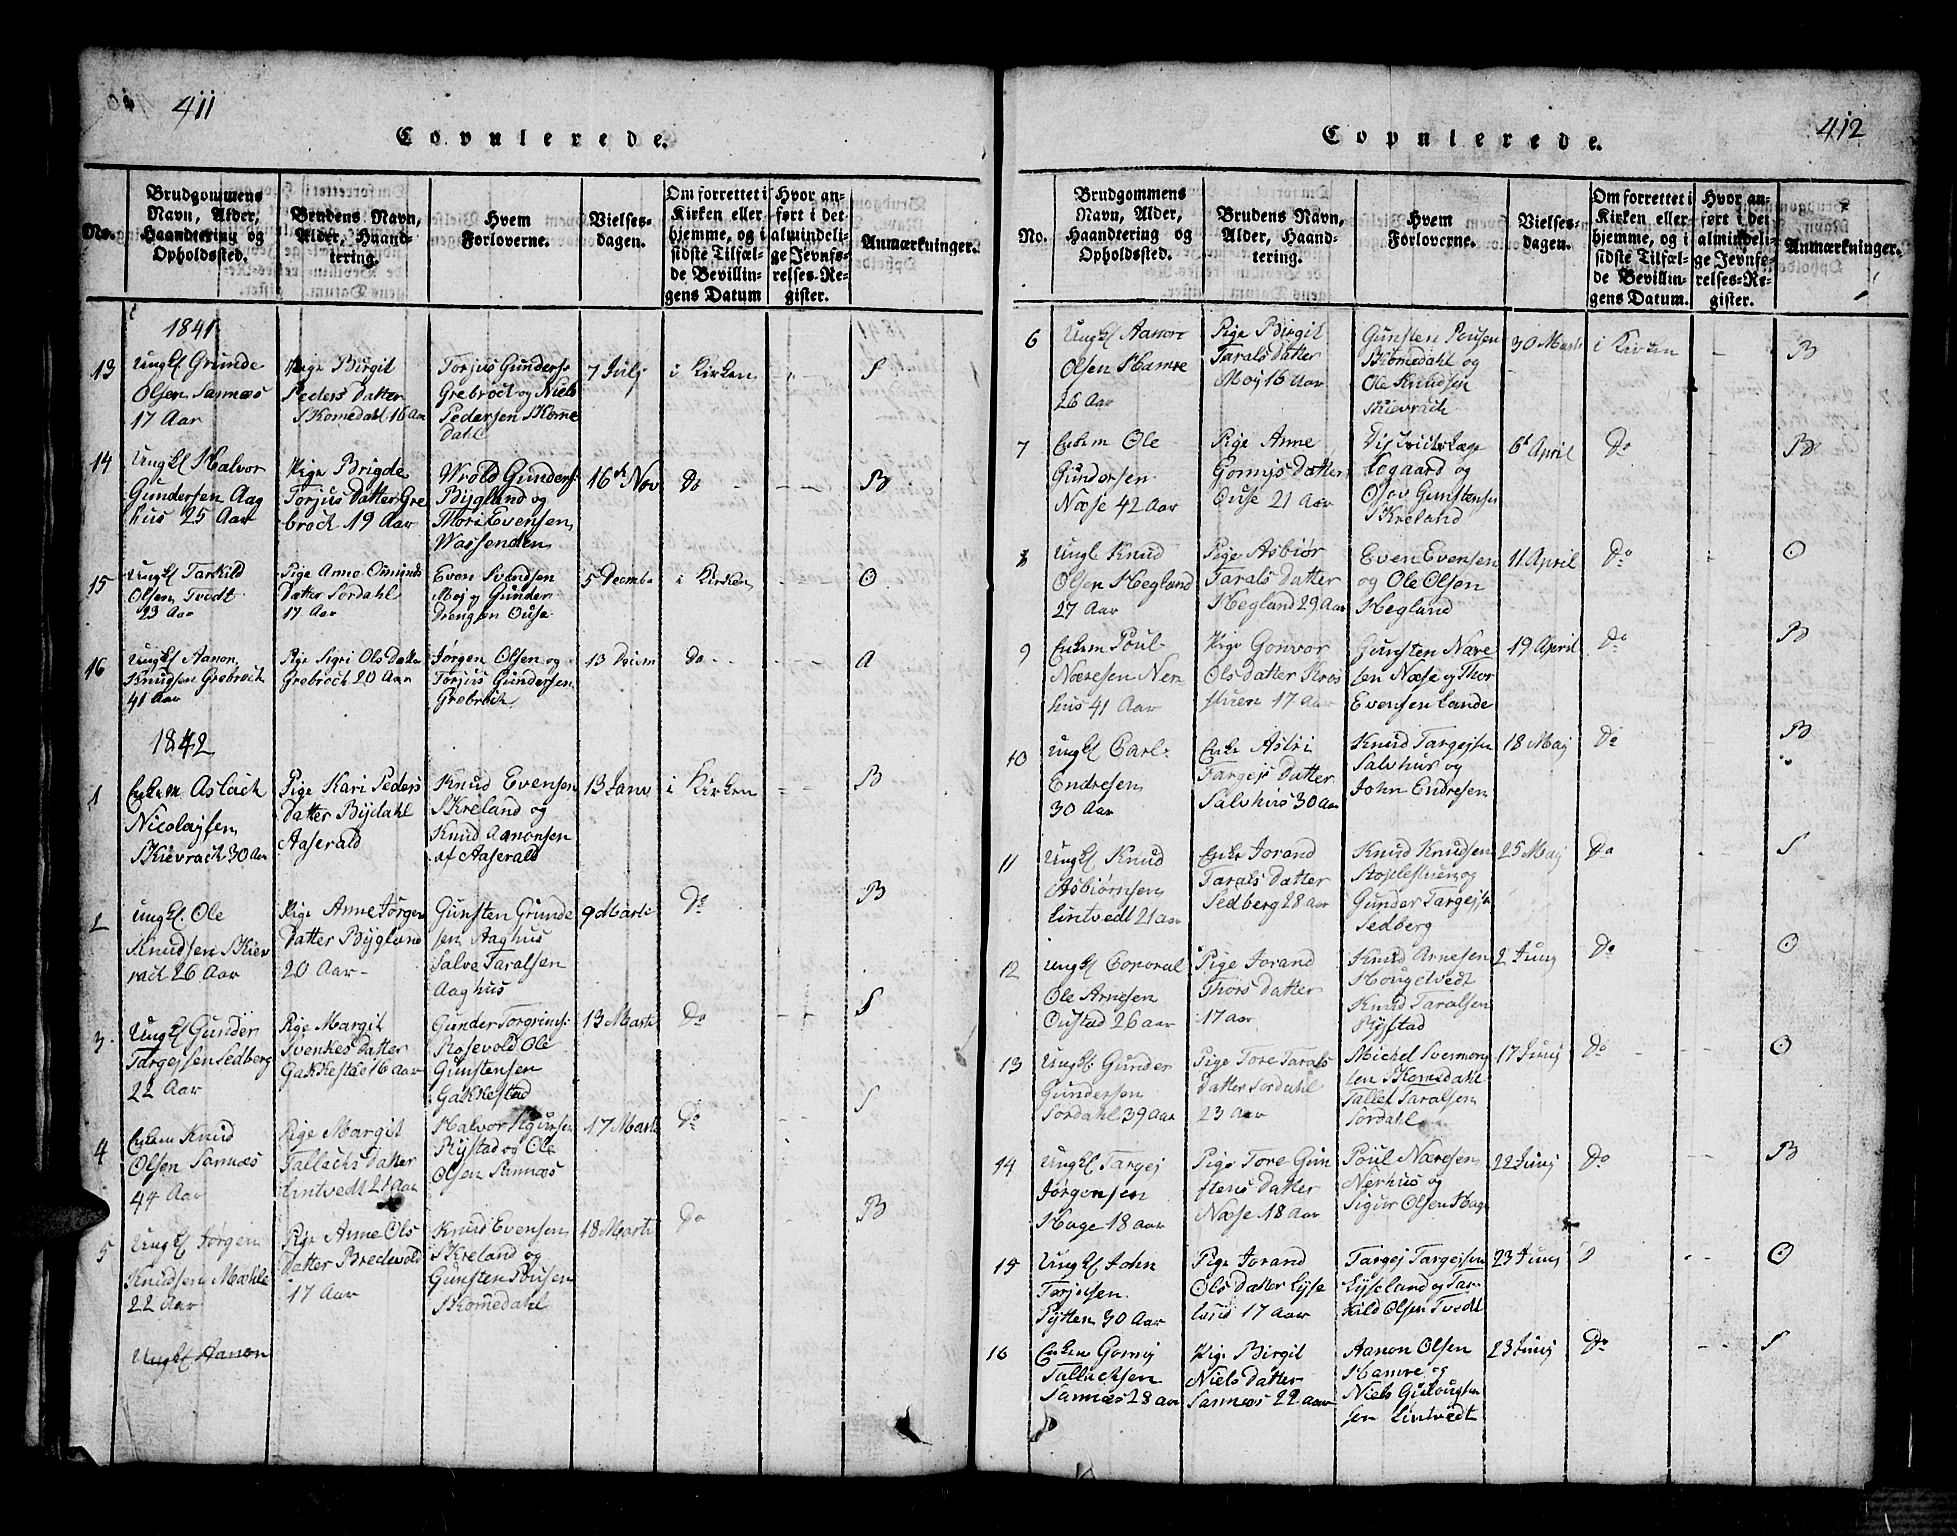 411
Copulerede.
No.
Brudgommens
Navn, Alder,
Haandtering og
Opholdssted.
Brudens Navn,
Alder, Haand-
tering.
Hvem
Forloverne.
Vielses-
dagen.
Om forrettet i
Kirken eller
hjemme, og i
sidste Tilfæl-
de Bevillin-
gens Datum
Hvor an-
ført i det
almindeli-
ge Jevnfø-
relses-Re-
gister.
Anmærkninger.
1841
13
Ungkl Grunde
Olsen Sannæs
17 Aar
Pige Birgit
Peders Datter
Skomedahl 16 Aar
Torjus Gunders
Grebrock og Niels
Pedersen Skome
Dahl
7 July
i Kirken
S
14
Ungkl Halvor
Gundersen Aag
hus 25 Aar
Pige Brigde
Torjus Datter Gre
brock 19 Aar
Wrold Gunders
Bygland og
Thor Evensen
Wassenden
16de Nov
Do
B
15
Ungkl Tarkild
Olsen Tvedt
23 Aar
Pige Anne Omunds
Datter Sordahl
17 Aar
Even Svendsen
Moj og Gunder
Drengsen Ouse
5 Decembe
i Kirken
O
16
Ungkl Aanon
Knudsen Grebrock
41 Aar
Pige Sigri Ols Datter
Grebrock 20 Aar
Jørgen Olsen og
Torjus Gundersen
Grebrock
13 Decem
Do
A
1842
1
Enkem Aslach
Nicolaysen
Skievrack 30 Aar
Pige Kari Peders
Datter Bydahl
Aaserald
Knud Evensen
Skreland og
Knud Aanonsen
af Aaserald
13 Janv
i Kirken
B
2
Ungkl. Ole
Knudsen Skiev
rack 26 Aar
Pige Anne Jørgen
Datter Bygland
20 Aar
Gunsten Grunde
sen Aaghus
Salve Taralsen
Aaghus
9 Marti
Do
B
3
Ungkl Gunder
Targejsen Sedberg
22 Aar
Pige Margit
Svenkes Datter
Gakkestad 16 Aar
Gunder Torgrims
Rosevold Ole
Gunstensen
Gakkestad
13 Marti
Do
S
4
Enkem Knud
Olsen Sannæs
44 Aar
Pige Margit
Tallachs Datter
Lintvedt 21 Aar
Halvor Sigursen
Rystad og Ole
Olsen Sannæs
17 Marti
Do
S
5
Ungkl Jørgen
Knudsen Mæhle
22 Aar
Pige Anne Ols
Datter Bredevold
17 Aar
Knud Evensen
Skreland og
Gunsten Pousen
Skomedahl
18 Marti
Do
B
Ungkl Aanon
412
Copulerede.
No.
Brudgommens
Navn, Alder,
Haandtering og
Opholdssted.
Brudens Navn,
Alder, Haand-
tering.
Hvem
Forloverne.
Vielses-
dagen.
Om forrettet i
Kirken eller
hjemme, og i
sidste Tilfæl-
de Bevillin-
gens Datum.
Hvor an-
ført i det
almindeli-
ge Jevnfø-
relses-Re-
gister.
Anmærkninger.
6
Ungkl Aanon
Olsen Hamre
26 Aar
Pige Birgit
Tarals Datter
Moj 16 Aar
Gunsten Pousen
Skomedahl og
Ole Knudsen
Skievrach
30 Marti
i Kirken
B
7
Enkem Ole
Gundersen
Næse 42 Aar
Pige Anne
Gomejs Datter
Ouse 21 Aar
Districtslæge
og
Osov Gunstensen
Skreland
6t April
Do
B
8
Ungk Knud
Olsen Hegland
27 Aar
Pige Asbiør
Tarals Datter
Hegland 29 Aar
Even Evensen
og Ole Olsen
Hegland
11 April
Do
O
9
Enkem Poul
Næresen Ner
hus 41 Aar
Pige Gonvor
Ols Datter Kros
17 Aar
Gunsten Nære
sen Næse og Thor
Evensen Lande
19 April
Do
B
10
Ungkl Carl
Endresen
30 Aar
Enke Aslri
Targejs Datter
Salvhus 30 Aar
Knud Targejsen
Salvhus og
John Endresen
18 Maj
Do
B
11
Ungkl Knud
Asbiørnsen
Lintvedt 21 aar
Enke Jorand
Tarals Datter
Sedberg 28 aar
Knud Knudsen
Stojelsluen og
Gunder Targejsen
Sedberg
25 Maj
Do
S
12
Ungkl Coporal
Ole Arnesen
Oustad 26 aar
Pige Jorand
Thors Datter
17 aar
Knud Arnesen
Hougetvedt
Knud Taralsen
Rystad
2 Juny
Do
O
13
Ungkl Gunder
Gundersen
Sordahl 39 Aar
Pige Tore Tarals
Datter Sordahl
23 Aar
Michel Svennung
sen Skomedahl
Tallef Taralsen
Sordahl
17 Junij
Do
O
14
Ungkl Targej
Jørgensen
Hage 18 aar
Pige Tore Gun
stens Datter
Næse 18 Aar
Poul Næresen
Nerhus og
Sigur Olsen Hage
22 Junij
Do
B
15
Ungkl John
Torjusen
Pytten 30 Aar
Pige Jorand
Ols Datter Lyse
land 17 aar
Targej Targejsen
Lyseland og Tar
kild Olsen Tvedt
23 Junij
D
O
16
Enkem Gomej
Tallachsen
Sannæs 28 aar
Pige Birgit
Niels Datter
Sannæs 22 aar
Aanon Olsen
Hamre og
Niels Gulougsen
sen Lintvedt
23 Junij
Do
S